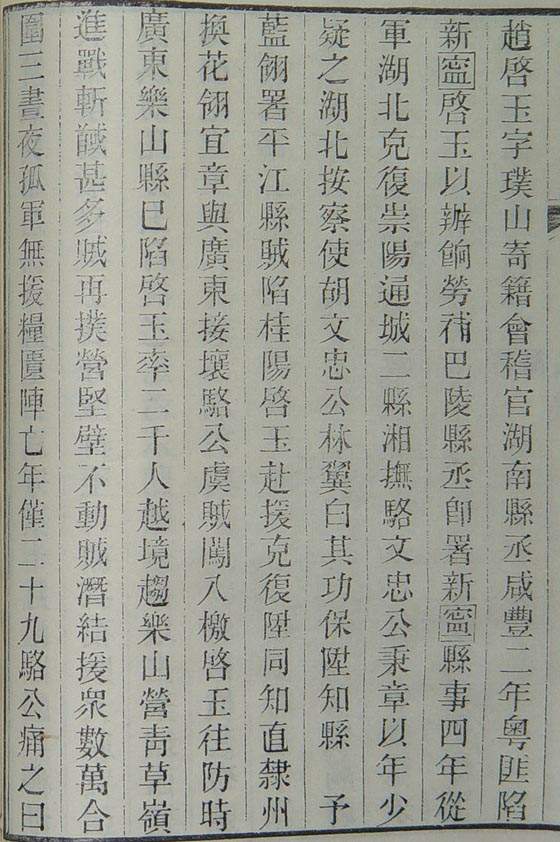 趙啓玉字璞山寄籍會稽官湖南縣丞咸豐二年粵匪陷
新甯啓玉以辦餉勞補巴陵縣丞卽署新甯縣事四年從
軍湖北克復崇陽通城二縣湘撫駱文忠公秉章以年少
疑之湖北按察使胡文忠公林翼白其功保陞知縣 予
藍翎署平江縣賊陷桂陽啓玉赴援克復陞同知直隸州
換花翎宜章與廣東接壤駱公虞賊闖入檄啓玉往防時
廣東樂山縣已陷啓玉率二千人越境趨樂山營靑草嶺
進戰斬馘甚多賊再撲營堅壁不動賊潛結援衆數萬合
圍三晝夜孤軍無援糧匱陣亡年僅二十九駱公痛之曰